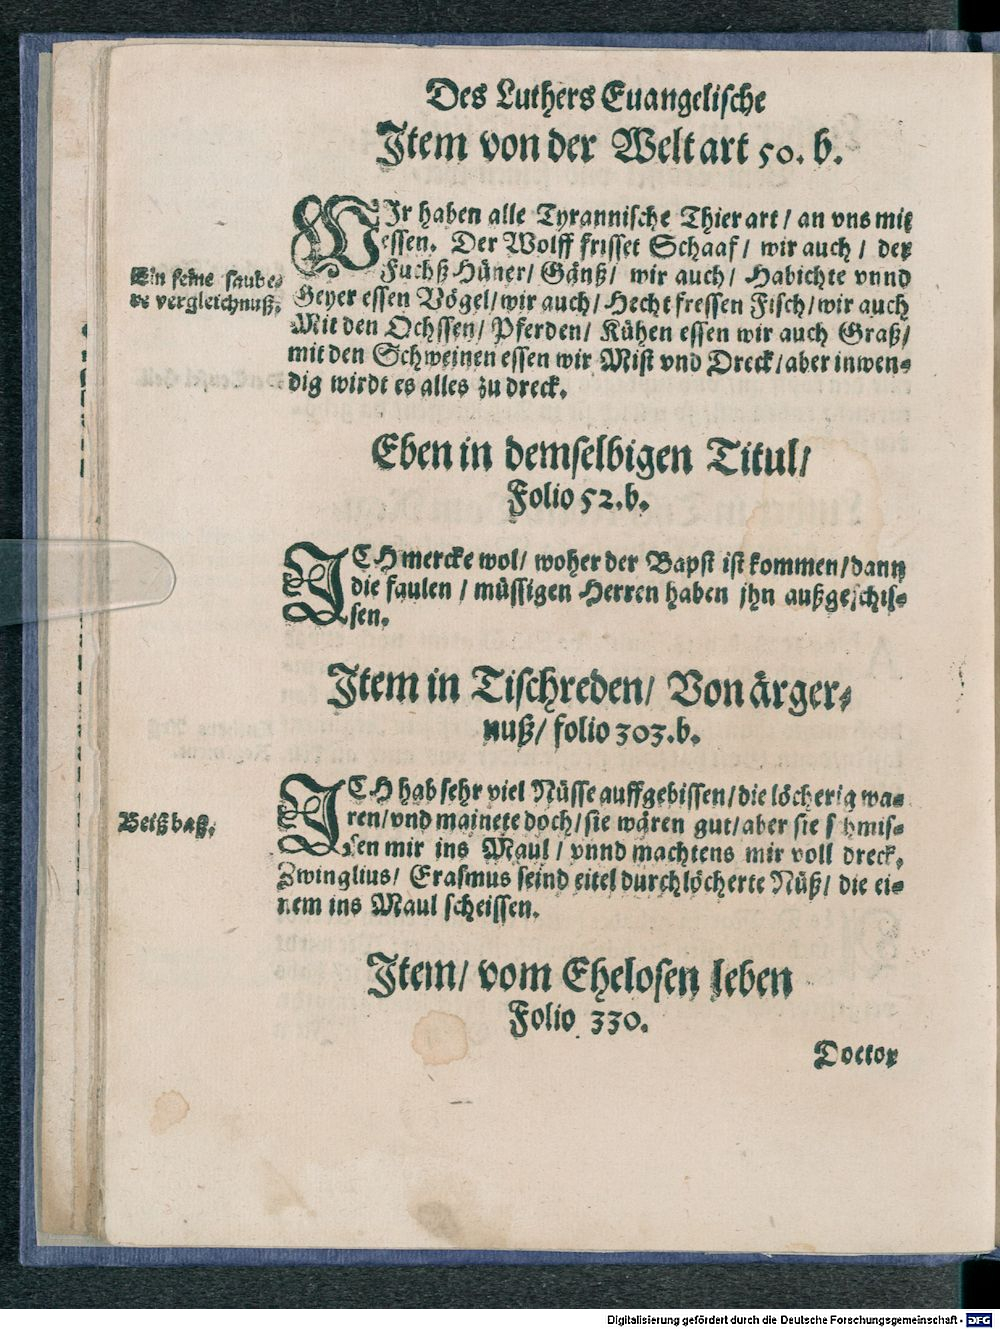 Des Luthers Euangelische
Item von der Welt art 50. b.
WIr haben alle Tyrannische Thier art / an vns mit
essen. Der Wolff frisset Schaaf / wir auch / der
Fuchß Hüner / Gänß / wir auch / Habichte vnnd
Geyer essen Vögel / wir auch / Hecht fressen Fisch / wir auch
Mit den Ochssen / Pferden / Kühen essen wir auch Graß /
mit den Schweinen essen wir Mist vnd Dreck / aber inwen-
dig wirdt es alles zu dreck.
Ein feine saube-
re vergleichnuß.
Eben in demselbigen Titul /
Folio 52. b.
ICH mercke wol / woher der Bapst ist kommen / dann
die faulen / müssigen Herren haben jhn außgeschis-
sen.
Item in Tischreden / Von ärger-
nuß / folio 303. b.
ICH hab sehr viel Nüsse auffgebissen / die löcherig wa-
ren / vnd mainete doch / sie wären gut / aber sie schmis-
sen mir ins Maul / vnnd machtens mir voll dreck.
Zwinglius / Erasmus seind eitel durchlöcherte Nüß / die ei-
nem ins Maul scheissen.
Beiß baß.
Item / vom Ehelosen leben
Folio 330.
Doctor
Digitalisierung gefördert durch die Deutsche Forschungsgemeinschaft - DFG